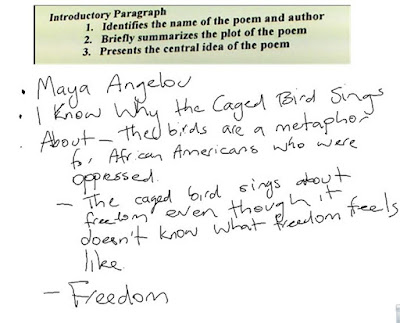 Introductory Paragraph
1. Identifies the name of the poem and author
2. Briefly summarizes the plot of the poem
3. Presents the central idea of the poem
• Maya Angelou
• I Know Why the Caged Bird Sings
• About – the birds are a metaphor
for African Americans who were
oppressed.
– The caged bird sings about
freedom even though it
doesn't know what freedom feels
like.
– Freedom